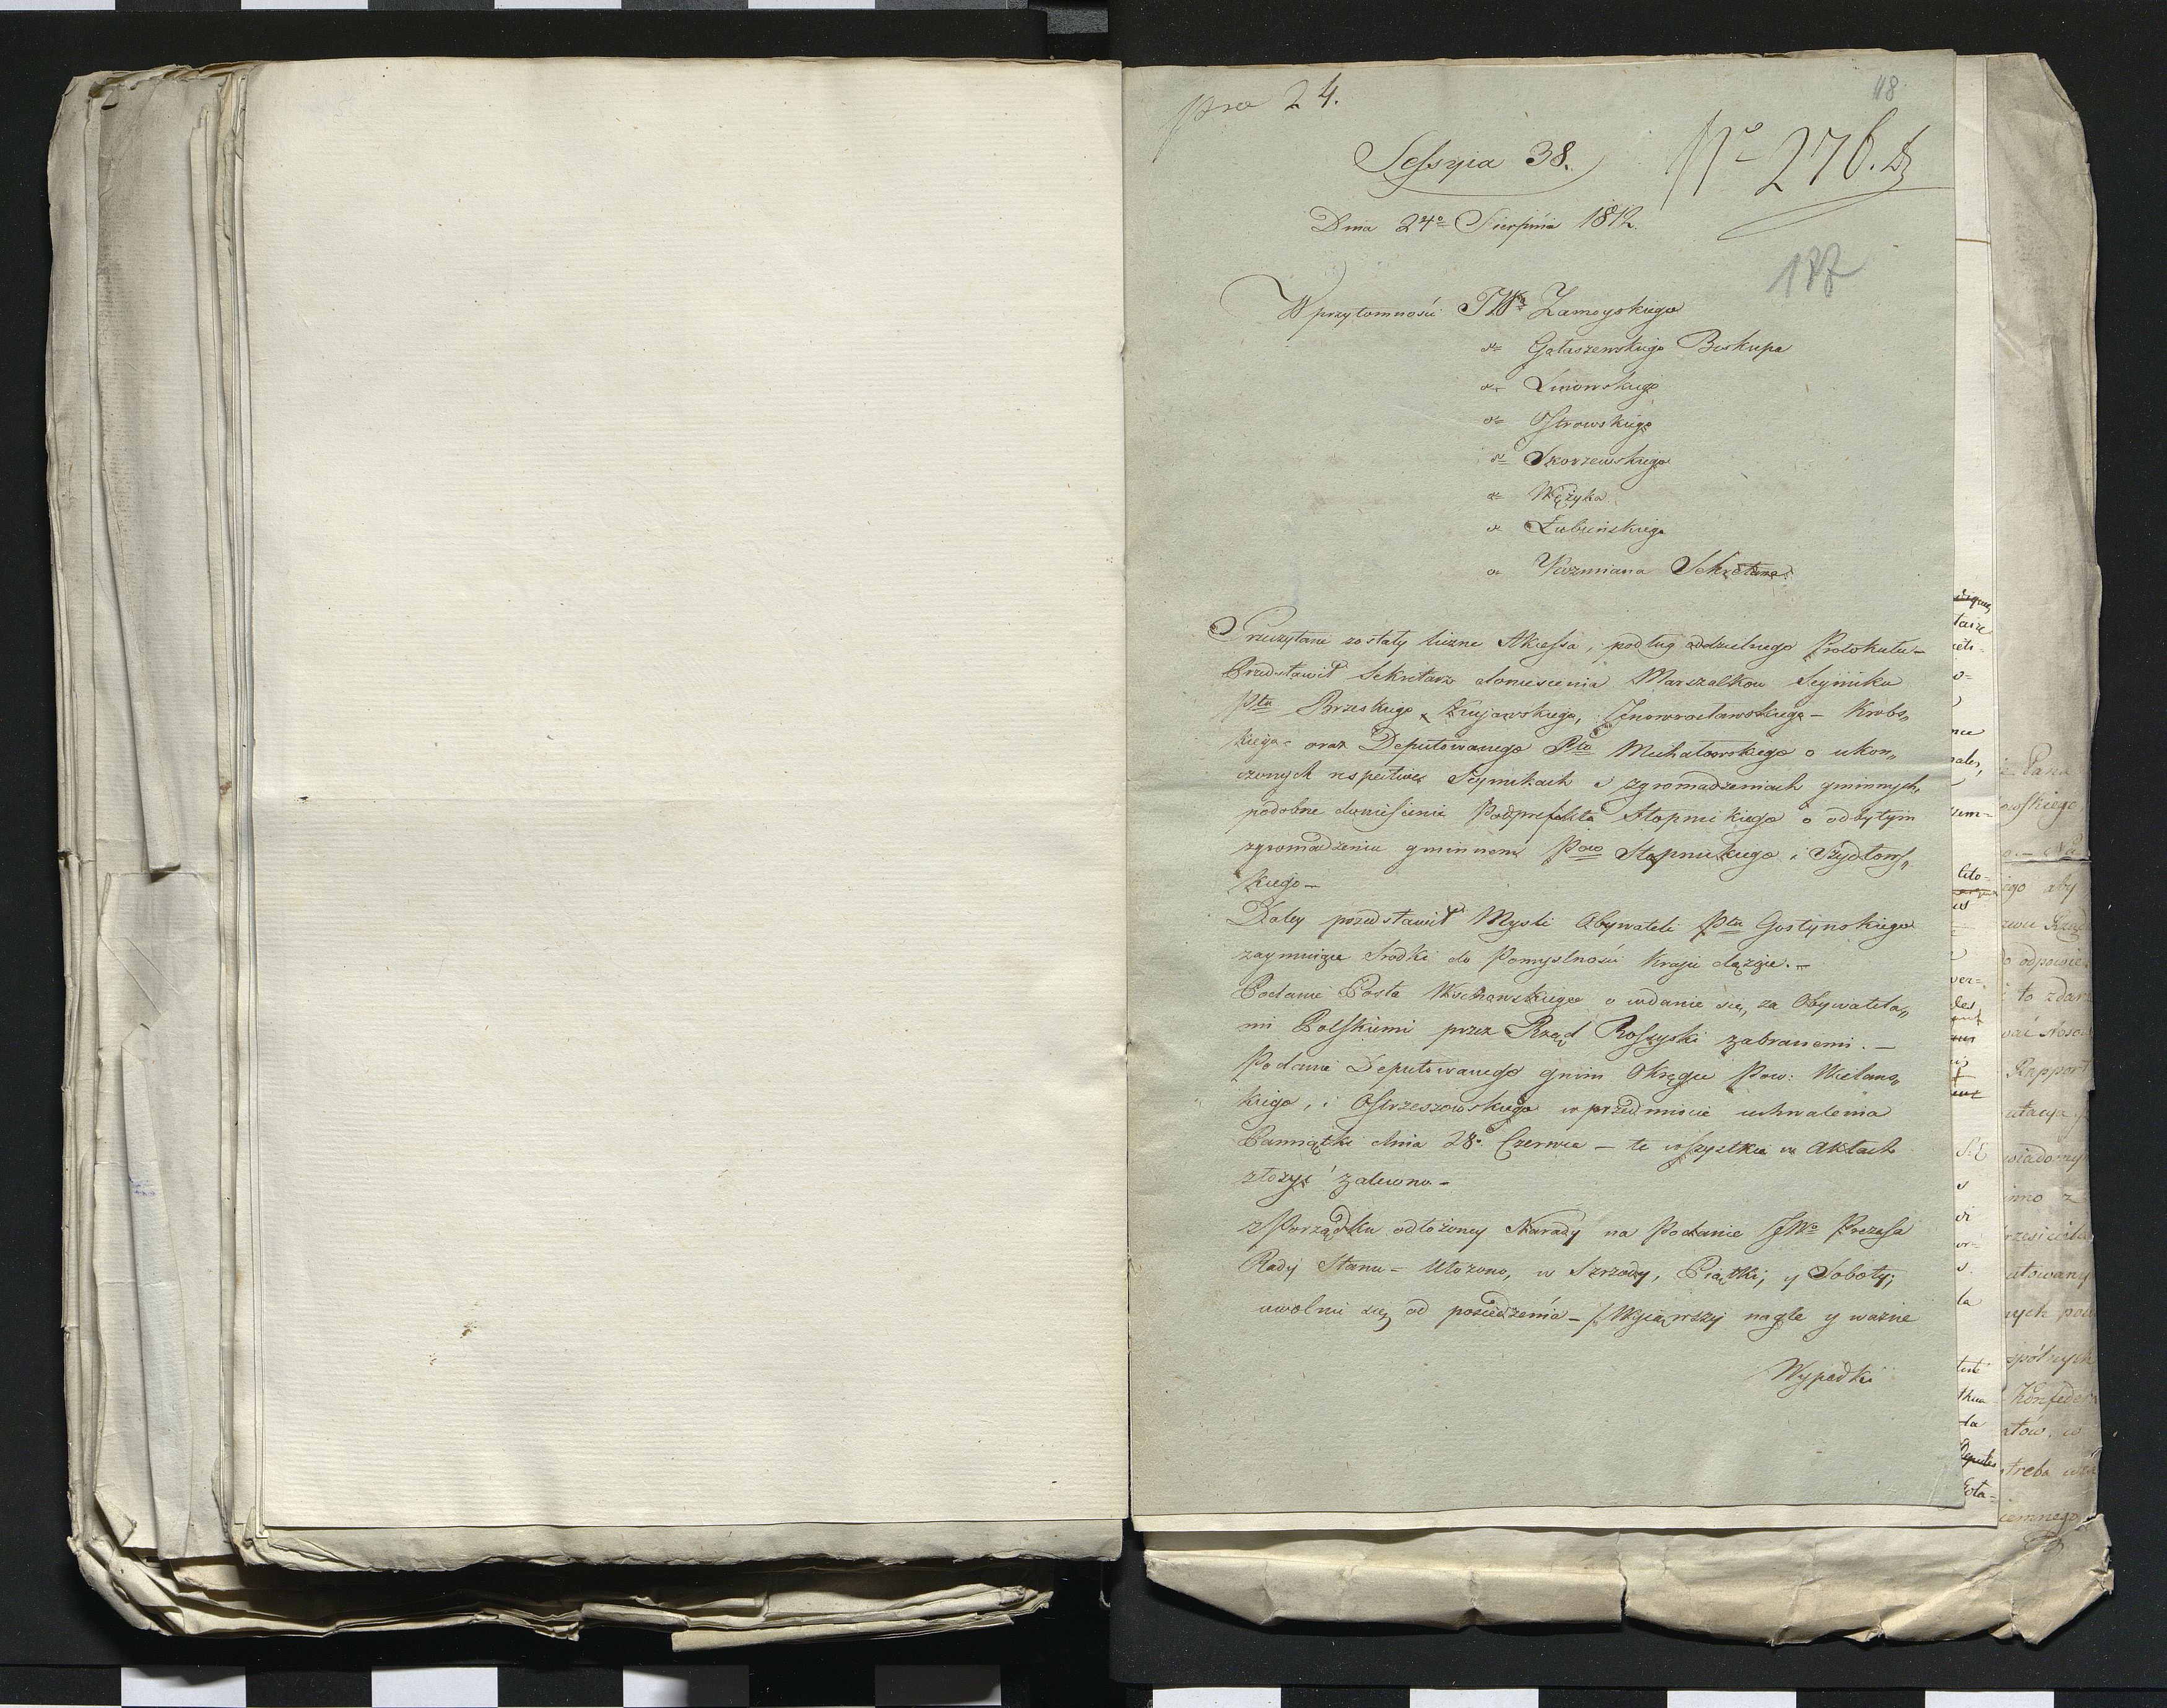 pra 24.
118.
Sessyia 38.
Nº 276. D
Dnia 24º Sierpnia 1812.
187
W przytomności JWº Zamoyskiego
dº Gołaszewskiego Biskupa
dº Linowskiego
dº Ostrowskiego
dº Skorzewskiego
dº Wężyka
dº Łubieńskiego
dº Kozmiana Sekretarza.
Przeczytane zostały liczne Akcessa, podług oddzielnego Protokułu –
Przedstawił Sekretarz doniesienia Marszałkow Seymiku
Ptu Brzeskiego Kujawskiego, Jnowrocławskiego – Krobs„
kiego – oraz Deputowanego Ptu Michałowskiego o ukon„
czonych respective Seymikach i zgromadzeniach gminnych,
podobne doniesienie Podprefekta Stopnickiego o odbytym
zgromadzeniu gminnem Pow Stopnickiego i Szydłows„
kiego –
Daley przedstawił Mysli Obywateli Ptu Gostynskiego
zaymuiące Srodki do Pomyslności Kraju dążące. –
Podanie Posła Wschowskiego o wdanie się za Obywatela„
mi Polskiemi przez Rząd Rossyiski zabranemi. –
Podanie Deputowanego gmin Okręgu Pow: Wieluns„
kiego, i Ostrzeszowskiego w przedmiocie uchwalenia
Pamiątki dnia 28. Czerwca – te wszystkie w Aktach
złożyć zalecono –
z Porządku odłożoney Narady na Podanie JWº Prezesa
Rady Stanu – Ułożono, w Szrzody, Piątki, y Soboty;
uwolnić się od posiedzenia – /Wyiąwszy nagłe y ważne
Wypadki